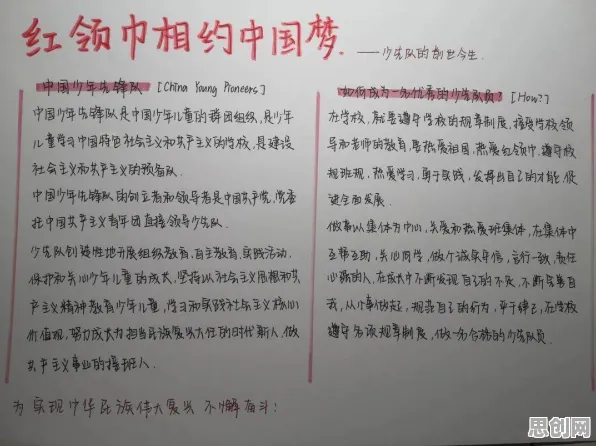 红领巾相约中国梦.
——少先队的前世今生.
中国少年先锋队 [China Young Pioneers]
中国少年先锋队是中国少年儿童的群团组织,是少年
儿童学习中国特色社会主义和共产主义的学校,是建设
社会主义和共产主义的预备队.
中国少年先锋队的创立者和领导者是中国共产党,党委
托中国共产主义青年团直接领导少先队.
少先队创造性地开展组织教育,自主教育,实践活动.
保护和关心少年儿童的成长,坚持以社会主义思想和共
产主义精神教育少年儿童,学习和实践社会主义核心
价值观,努力成长为担当民族复兴大任的时代新人,做
共产主义事业的接班人.
如何成为一名优秀的少先队员? [How?]
在学校,就是遵守学校的规章制度,接受学校领
导和老师的教育,要热爱祖国,热爱红领巾,遵守校
规班规,热爱学习,勇于实践,发挥出自己的才能,促
进全面发展.
做事以集体为中心,关爱和热爱班集体,在集体中
互帮互助,关心同学,做个诚实守信,言行一致,责任
心强的人,在成长中不断发现自己的不足,不断完善自
我,从小事做起,规范自己的行为,严于律己,在学校
遵守各项规章制度,做一名合格的少先队员.
为实现中华民族伟大复兴 不懈奋斗!
思创网